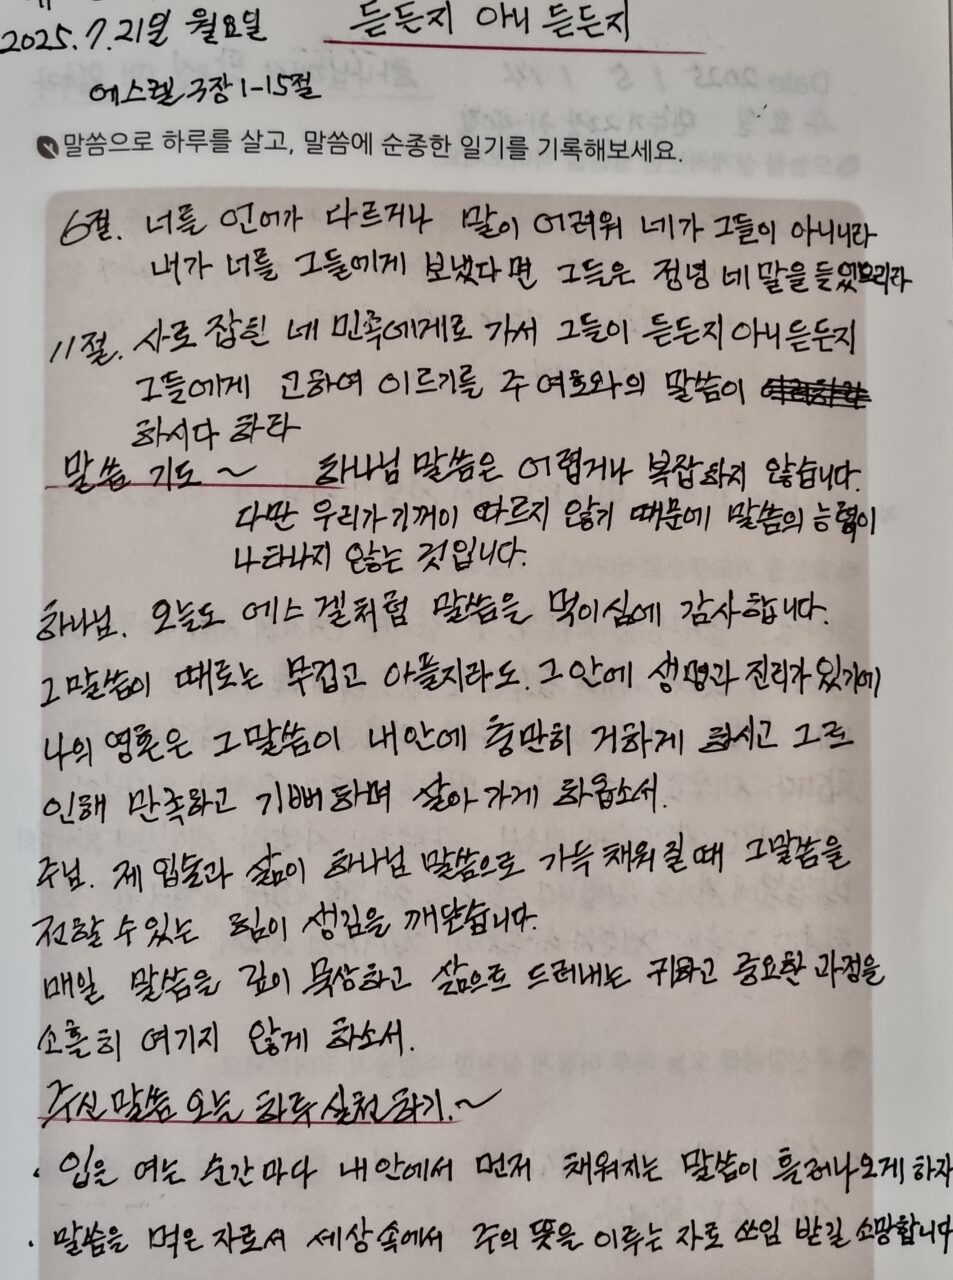 2025.7.21일 월요일 듣든지 아니 듣든지
에스겔 3장 1-15절
말씀으로 하루를 살고, 말씀에 순종한 일기를 기록해보세요.
6절. 너를 언어가 다르거나 말이 어려워 네가 그들이 아니니라
내가 너를 그들에게 보냈다면 그들은 정녕 네 말을 들었으리라
11절. 사로 잡힌 네 민족에게로 가서 그들이 듣든지 아니 듣든지
그들에게 고하여 이르기를 주 여호와의 말씀이
하시다 하라
말씀 기도~ 하나님 말씀은 어렵거나 복잡하지 않습니다.
다만 우리가 기꺼이 따르지 않기 때문에 말씀의 능력이
나타나지 않는 것입니다.
하나님. 오늘도 에스겔처럼 말씀을 먹이심에 감사합니다.
그 말씀이 때로는 무겁고 아플지라도. 그 안에 생명과 진리가 있기에
나의 영혼은 그 말씀이 내 안에 충만히 거하게 하시고 그로
인해 만족하고 기뻐하며 살아가게 하옵소서.
주님. 제 입술과 삶이 하나님 말씀으로 가득 채워질 때 그 말씀을
전할 수 있는 힘이 생김을 깨닫습니다.
매일 말씀을 깊이 묵상하고 삶으로 드러내는 귀하고 중요한 과정을
소홀히 여기지 않게 하소서.
주신 말씀 오늘 하루 실천하기.~
· 입을 여는 순간마다 내 안에서 먼저 채워지는 말씀이 흘러나오게 하자
· 말씀을 먹은 자로서 세상 속에서 주의 뜻을 이루는 자로 쓰임 받길 소망합니다